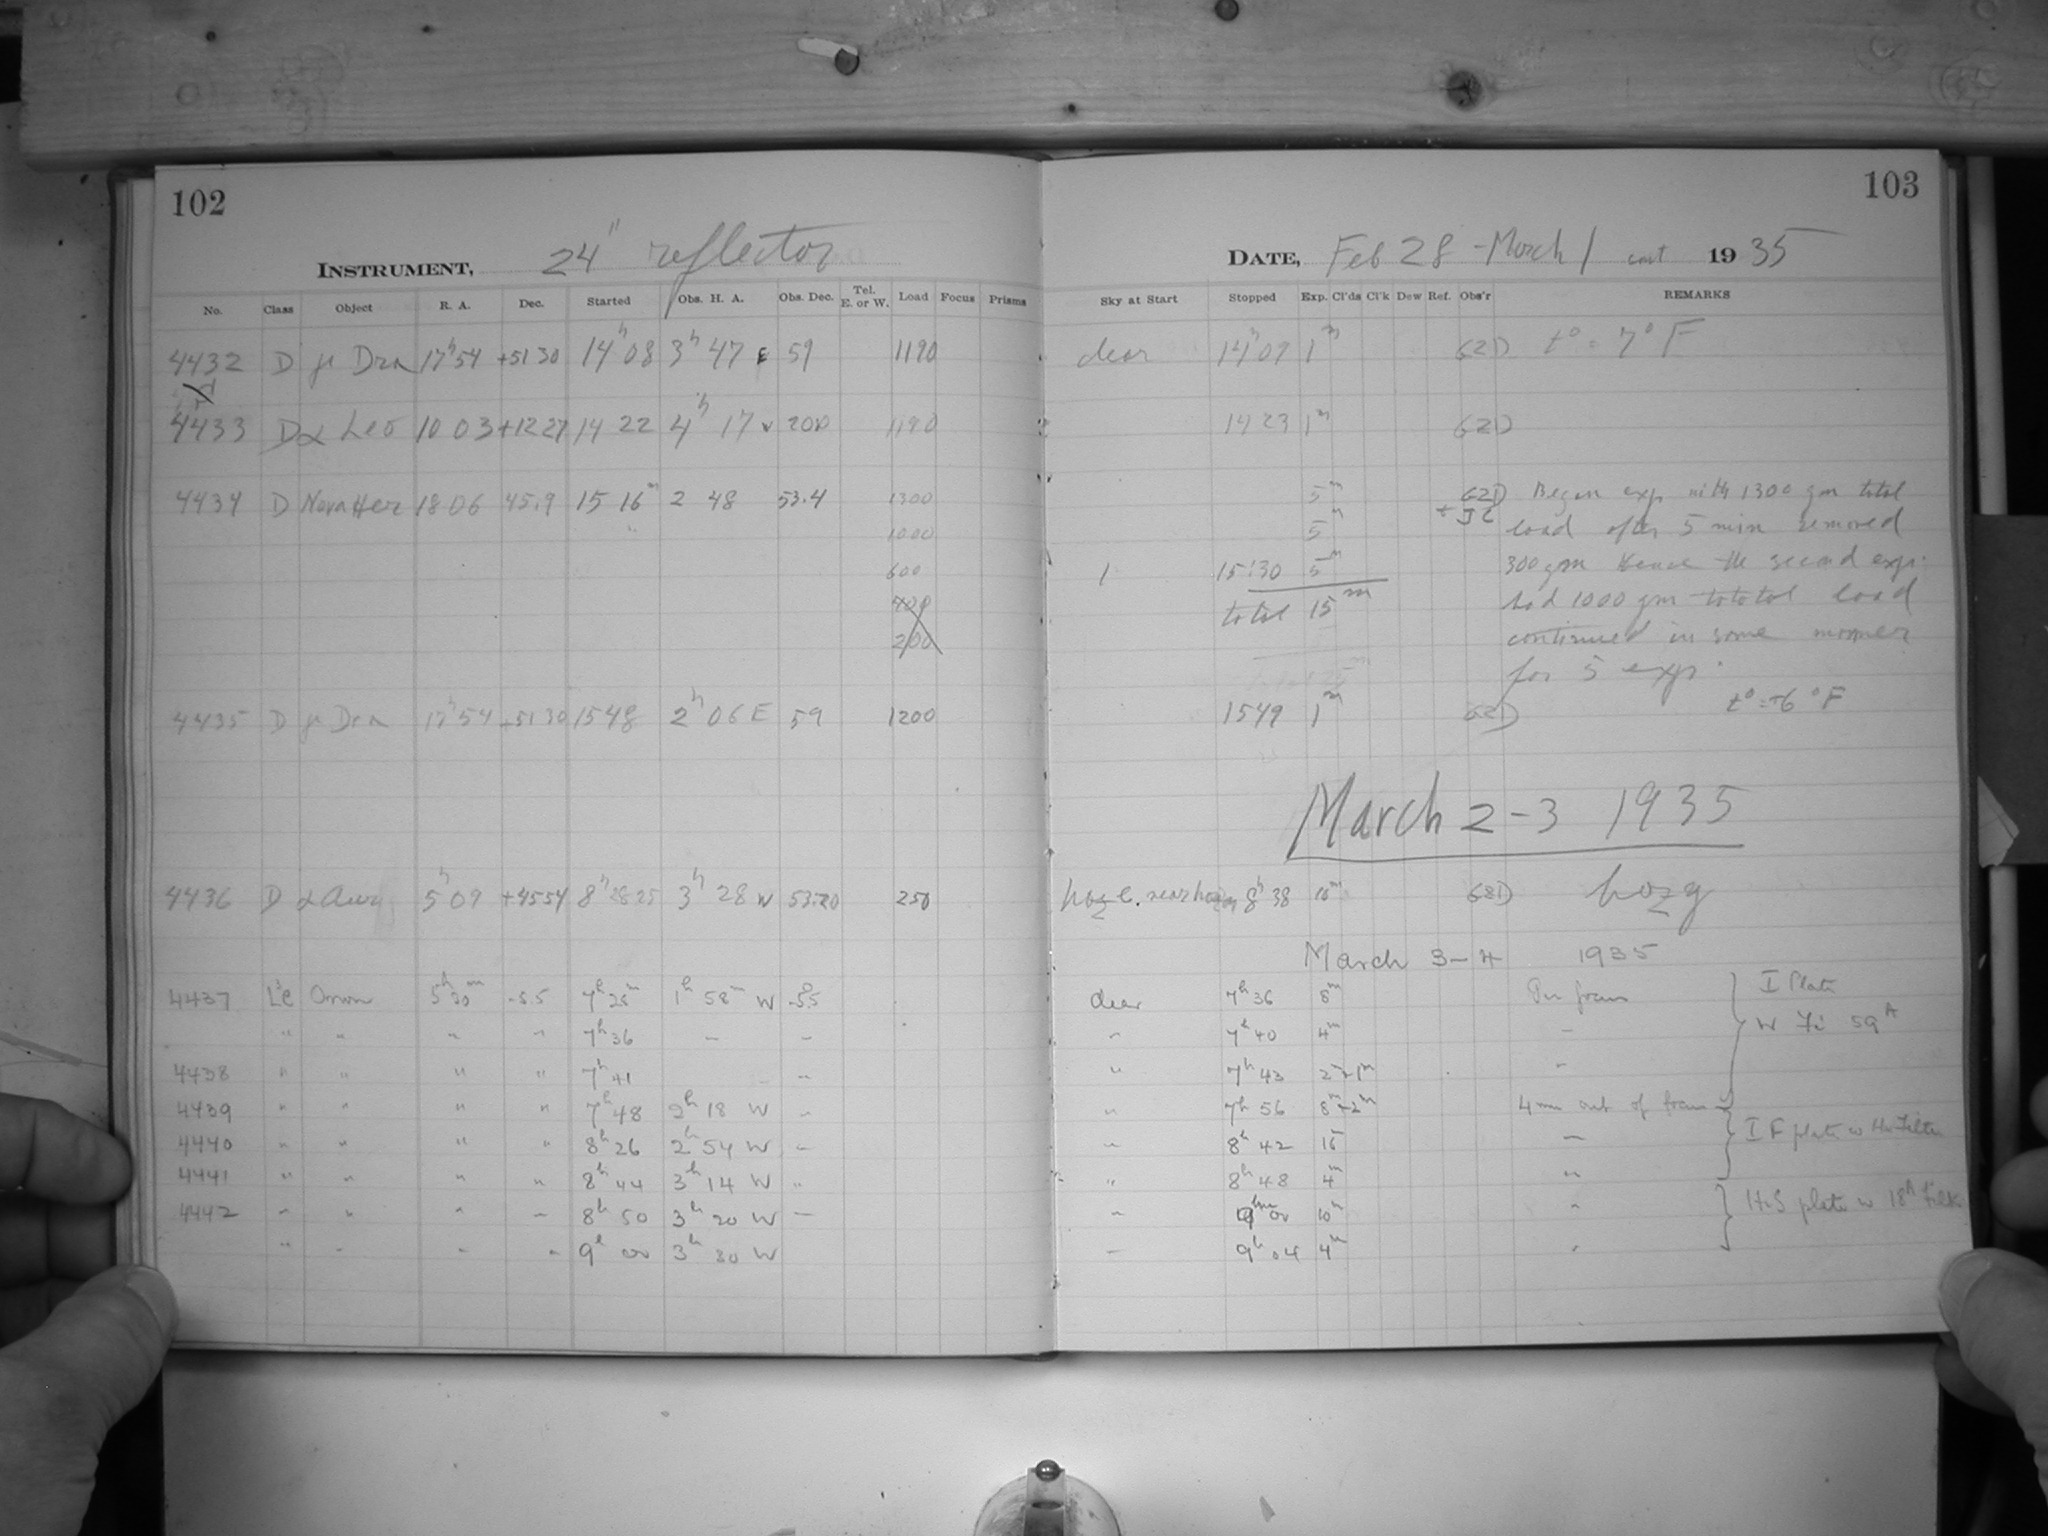 102
INSTRUMENT, 24" reflector
No. Class Object R. A. Dec. Started Obs. H. A. Obs. Dec. Tel. E. or W. Load Focus Prisms
4432 D Dra 17h54 +51 30 14h08 3h 47 E 59 1190
4433 D α Leo 10 03 +12 27 14 22 4h 17 w 200 1190
4434 D Nova Her 18 06 45.9 15 16m 2 48 53.4 1300
1000
600
200
4435 D Dra 17h54 +51 30 1548 2h 06 E 59 1200
4436 D α Aurig 5h 09 +4554 8h 28 25 3h 28 W 53:20 250
4437 Orion 5h 30m -5.5 7h 28m 1h 58m W -5.5
" " " " 7h 36 — —
4438 " " " " 7h 41 —
4439 " " " " 7h 48 2h 18 W "
4440 " " " " 8h 26 2h 54 W "
4441 " " " 8h 44 3h 14 W "
4442 " " " — 8h 50 3h 20 W —
" " " " 9h 00 3h 30 W
103
DATE, Feb 28 - March 1 cont 1935
Sky at Start Stopped Exp. Cl'ds Cl'k Dew Ref. Obs'r REMARKS
clear 14h09 1m t° = 7° F
14 23 1m
5m Began exp with 1300 gm total
5m load after 5 min removed
1 15:30 5m 300 gm Hence the second exp.
total 15m had 1000 gm tototal load
continued in same manner
for 5 exp.
1549 1m t° = +6° F
March 2-3 1935
8h 38 10m hazy
March 3-4 1935
clear 7h 36 8m In focus I Plate
" 7h 40 4m " W 59A
" 7h 43 "
" 7h 56 8m-2m 4mm out of focus
" 8h 42 15 — I F plate w Filter
" 8h 48 4m "
" 10m " plate w 18A Filter
— 9h 04 4m "